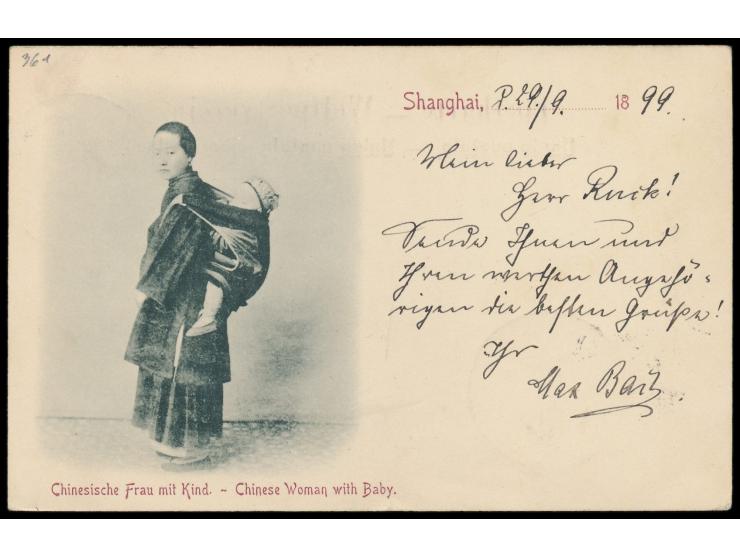 36
Shanghai, d. 29/9. 1899.
Mein lieber
Herr Ruck!
Sende Ihnen und
Ihren werthen Angehö-
rigen die besten Grüße!
Ihr
Max
Chinesische Frau mit Kind. - Chinese Woman with Baby.